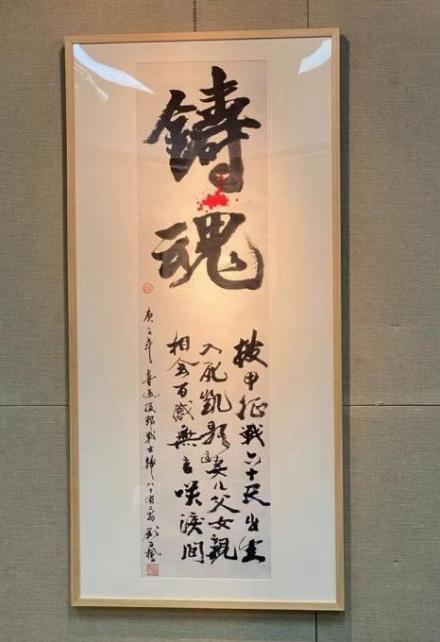 鑄魂
披甲征戰六十天出生
入死凱妻儿父女親
相会百感無言咲淚間
庚子年喜迎援鄂戰士歸八十有三翁